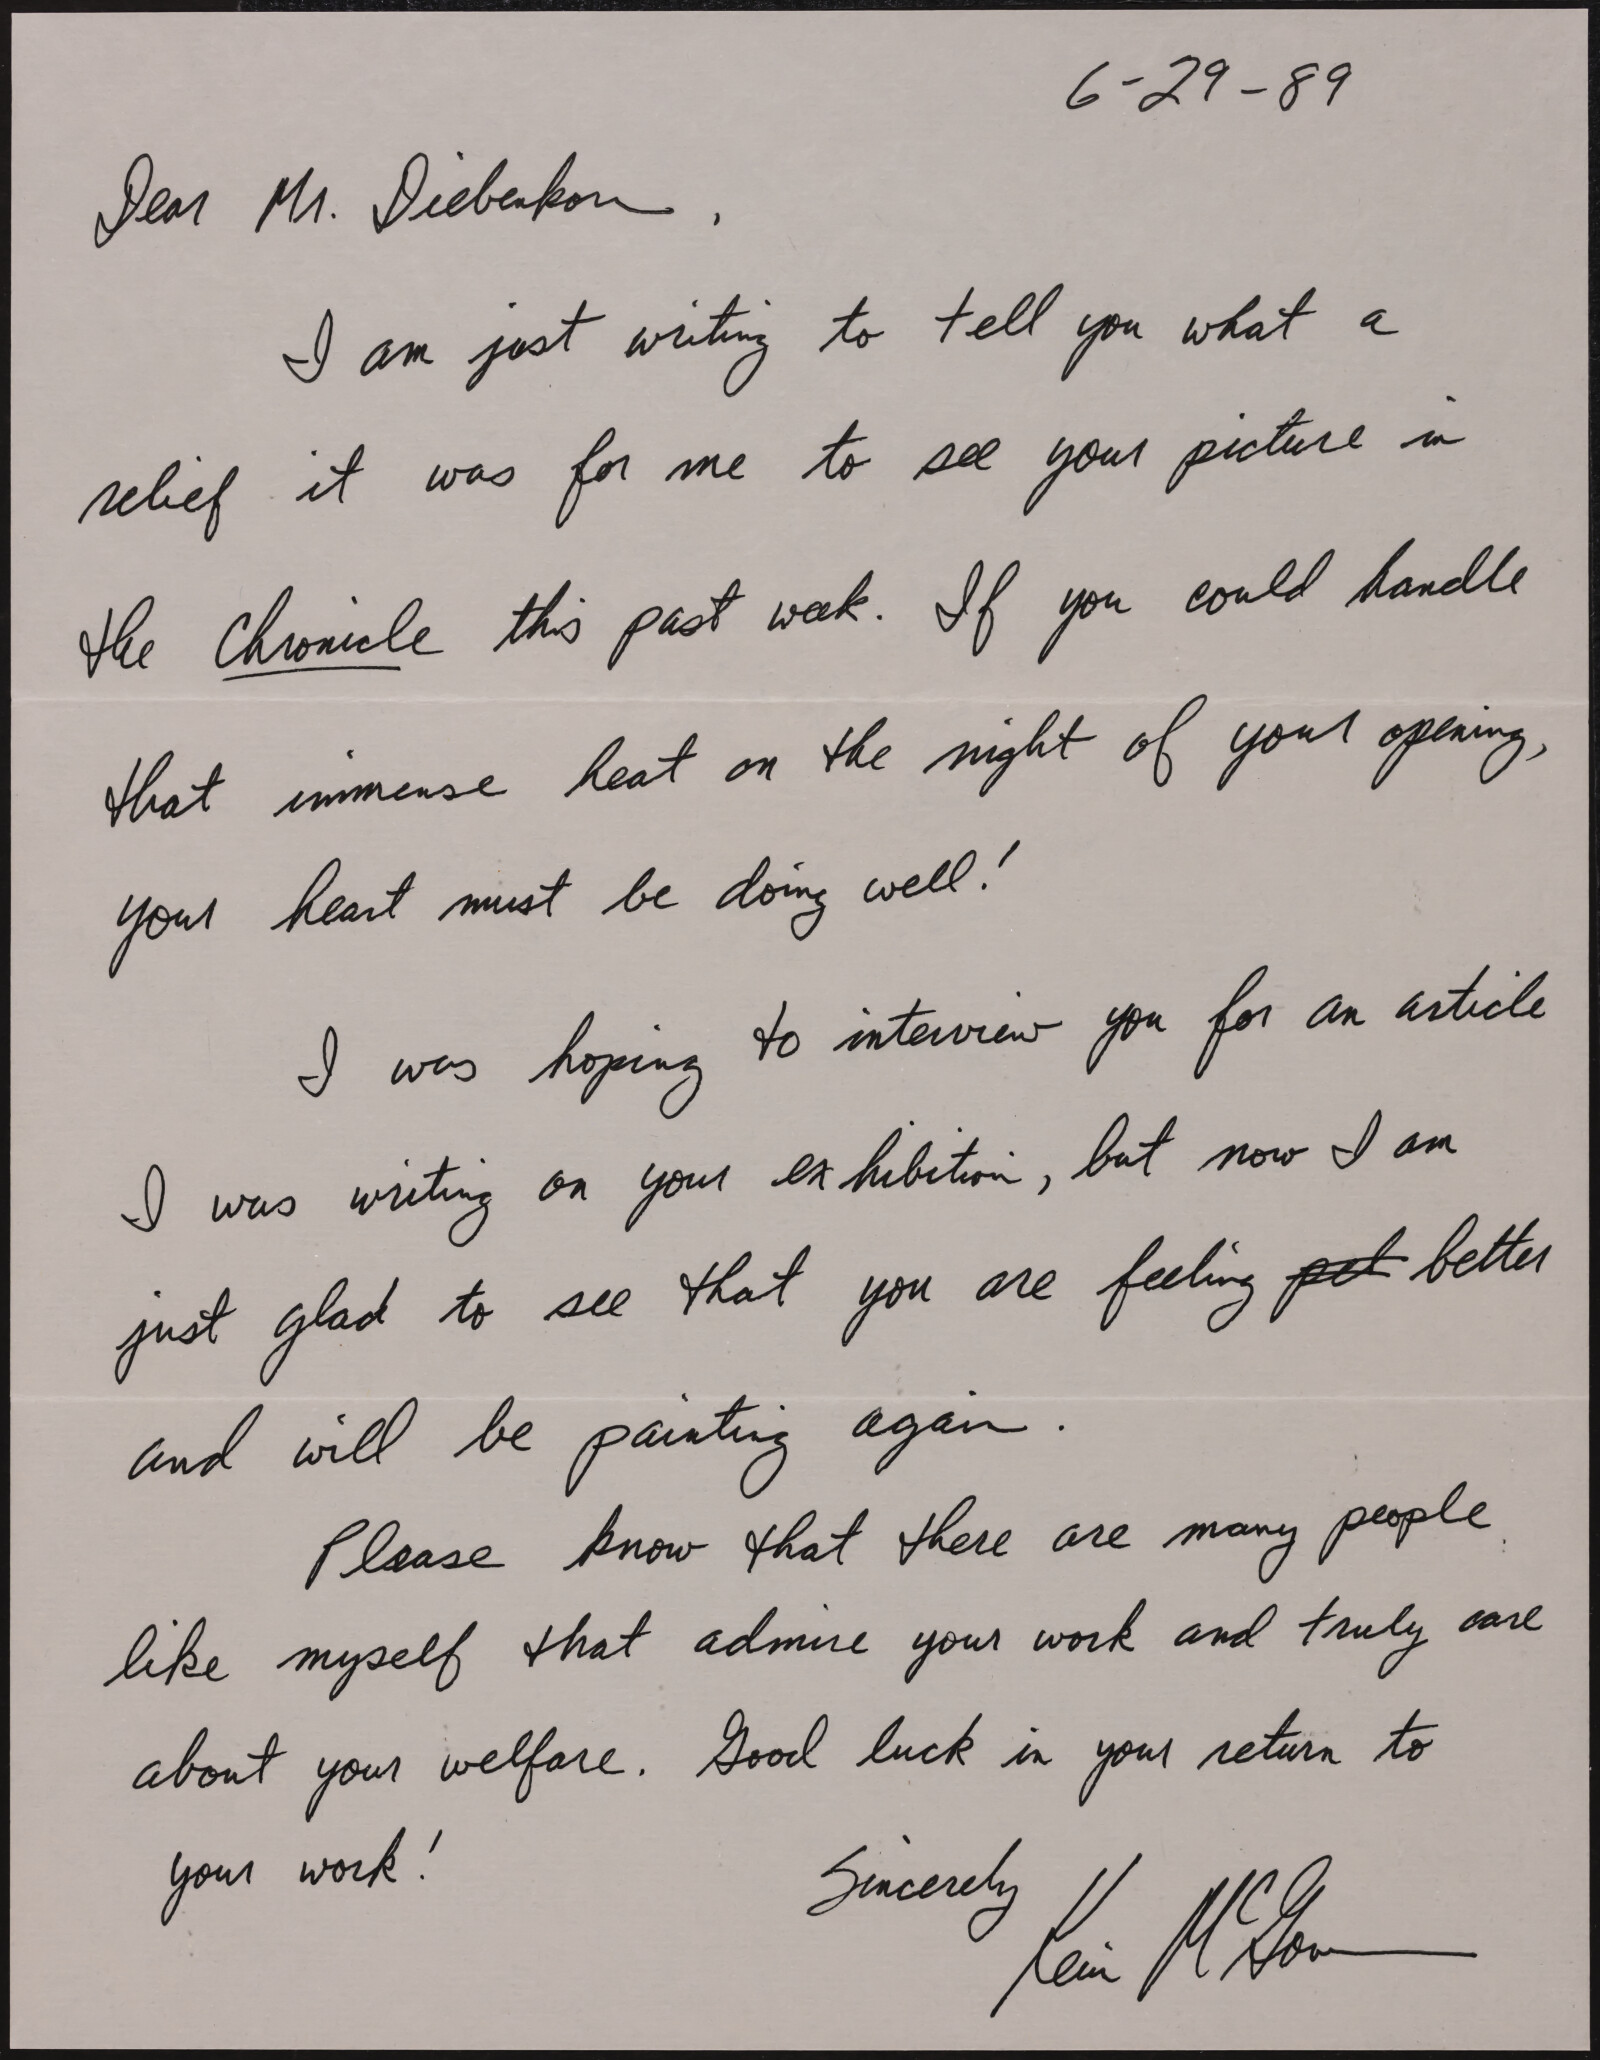 6-29-89
Dear Mr. Diebenkorn,
I am just writing to tell you what a
relief it was for me to see your picture in
the Chronicle this past week. If you could handle
that immense heat on the night of your opening,
your heart must be doing well!
I was hoping to interview you for an article
I was writing on your exhibition, but now I am
just glad to see that you are feeling better
and will be painting again.
Please know that there are many people
like myself that admire your work and truly care
about your welfare. Good luck in your return to
your work!
Sincerely